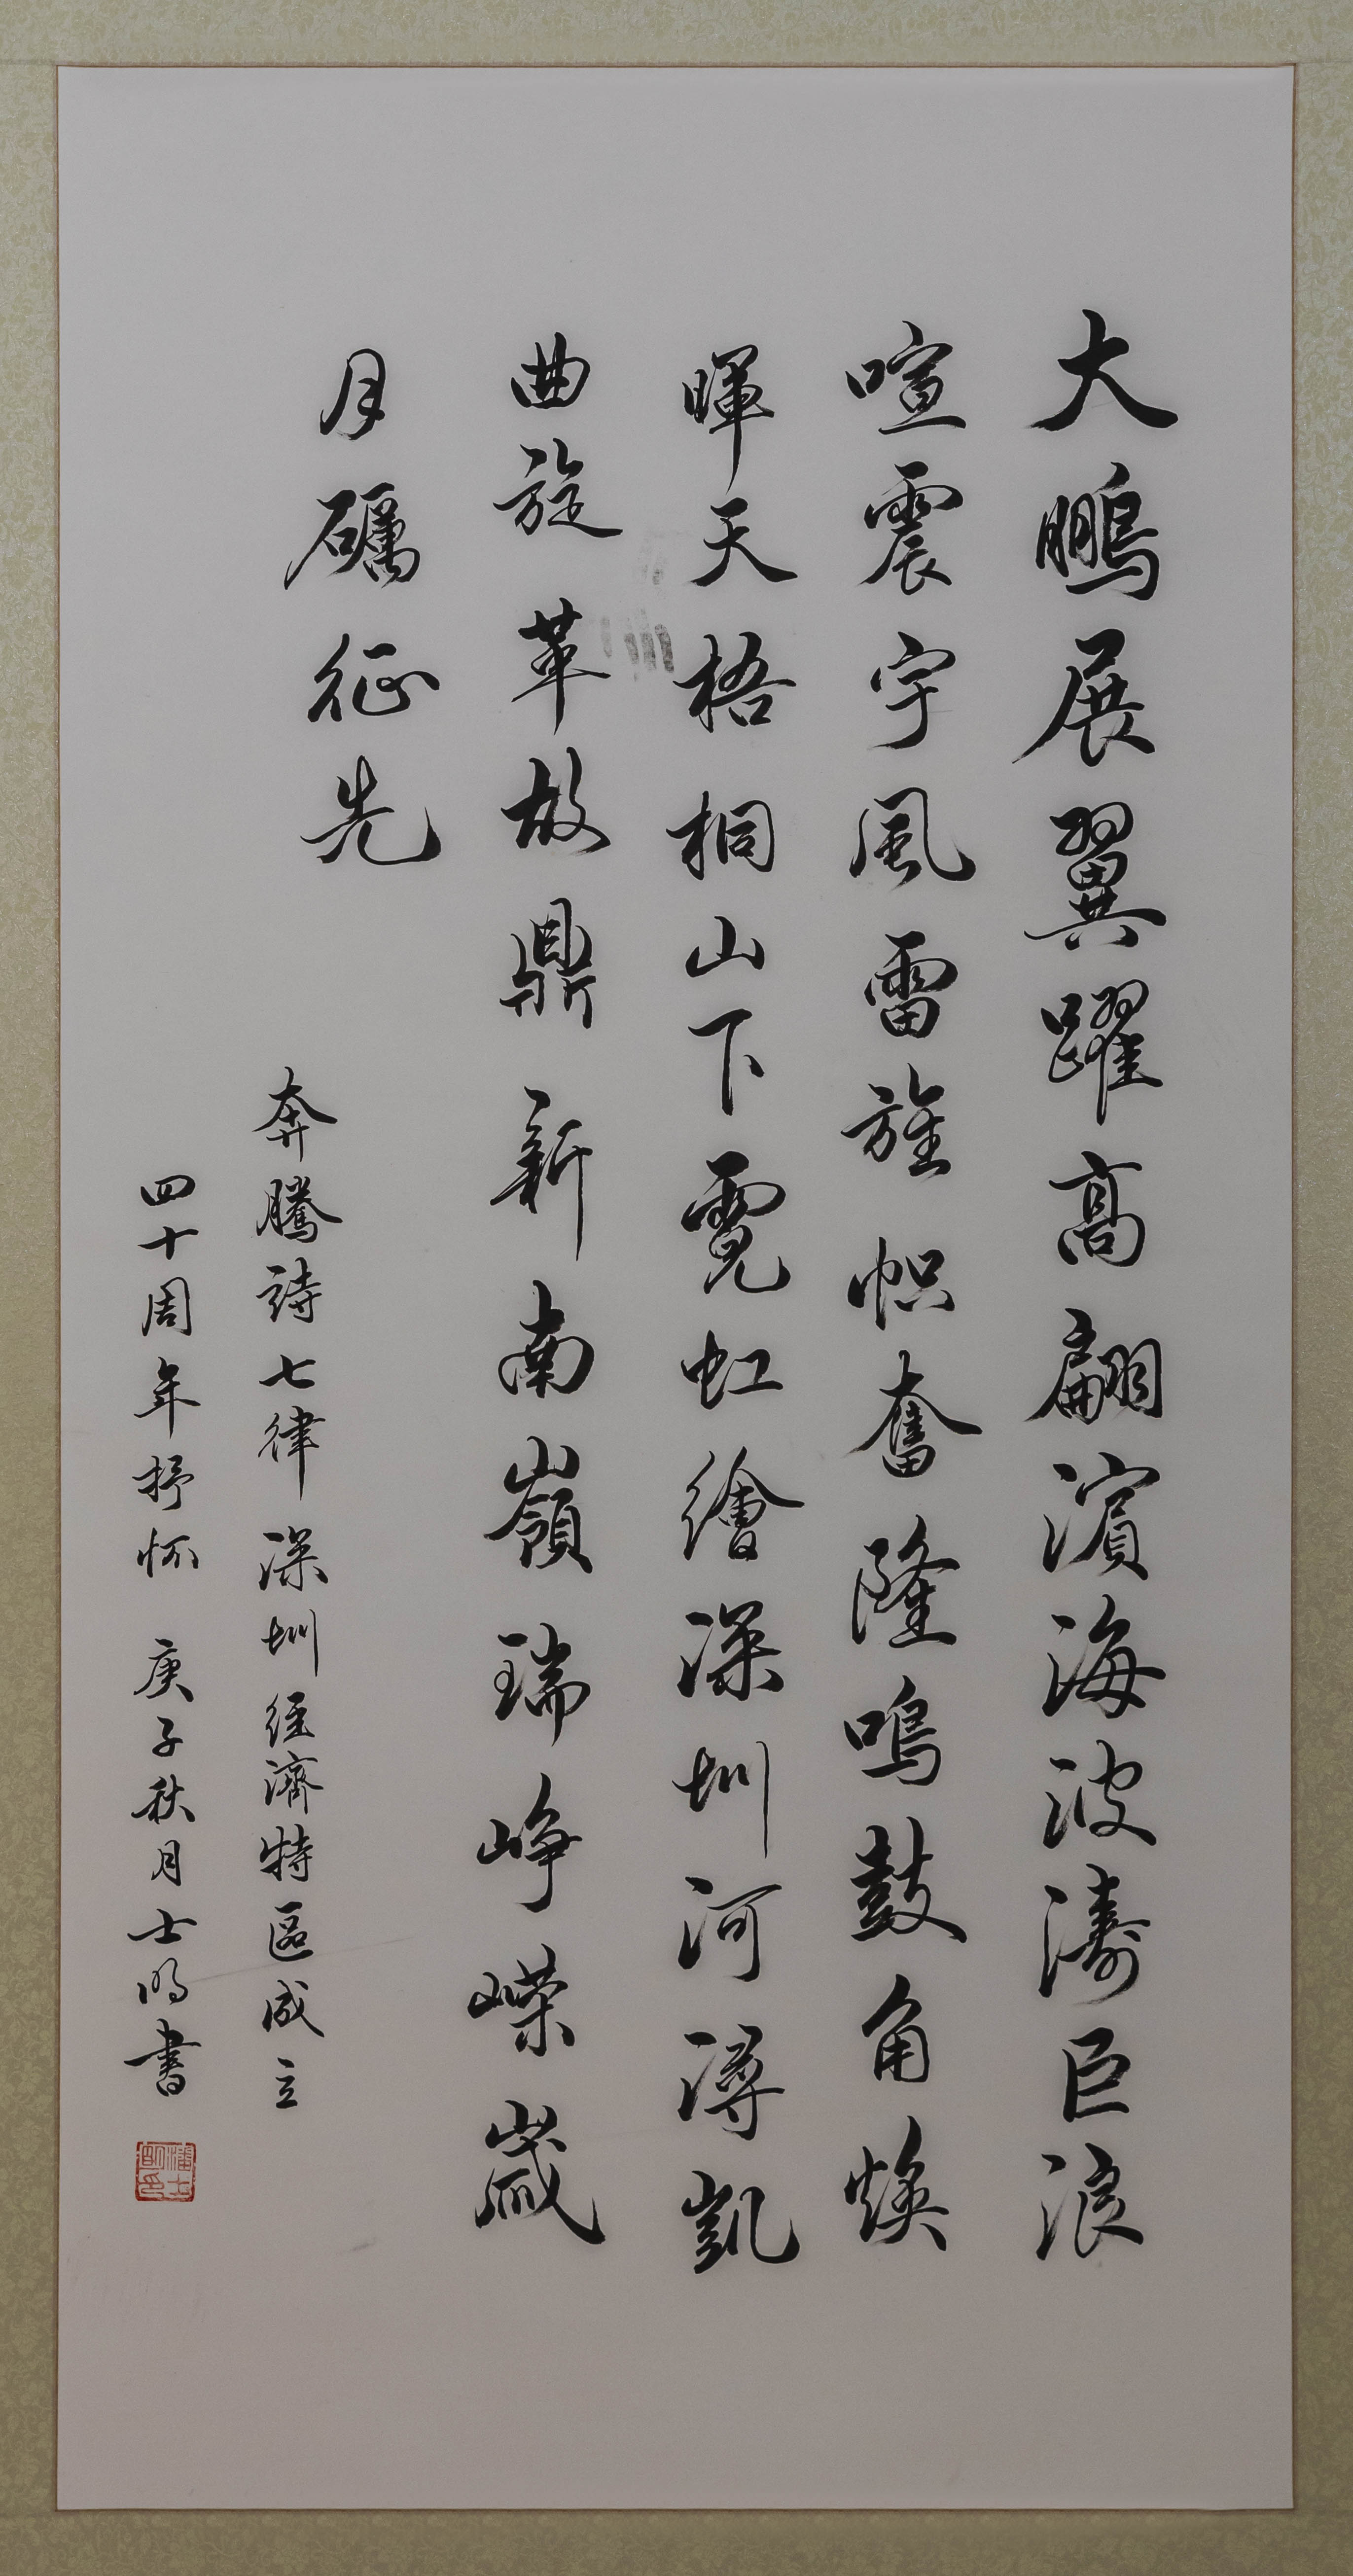 大鵬展翼躍高翩濱海波濤巨浪
喧震宇風雷旌帜奮隆鳴鼓角煥
暉天梧桐山下霓虹繪深圳河潯凱
曲旋革故鼎新南嶺瑞崢嶸歲
月礪征先
奔騰詩七律深圳經濟特區成立
四十周年抒怀庚子秋月士明書
潘士明印